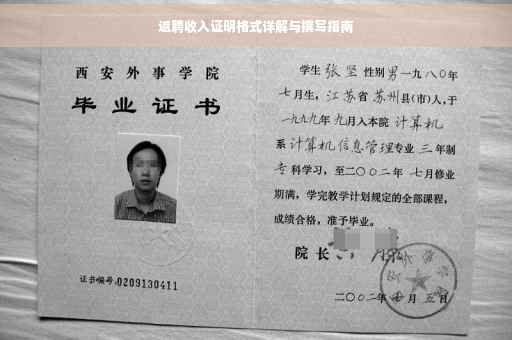 返聘收入证明格式详解与撰写指南
西安外事学院
毕业证书
证书编号:0209130411
学生 张坚 性别 男 一九八〇年
七月生，江苏省 苏州县(市)人，于
一九九九年 九月入本院 计算机
系 计算机信息管理专业 三 年制
专科学习，至二〇〇二年 七月修业
期满，学完教学计划规定的全部课程，
成绩合格，准予毕业。
院长
二〇〇二年 月 五日